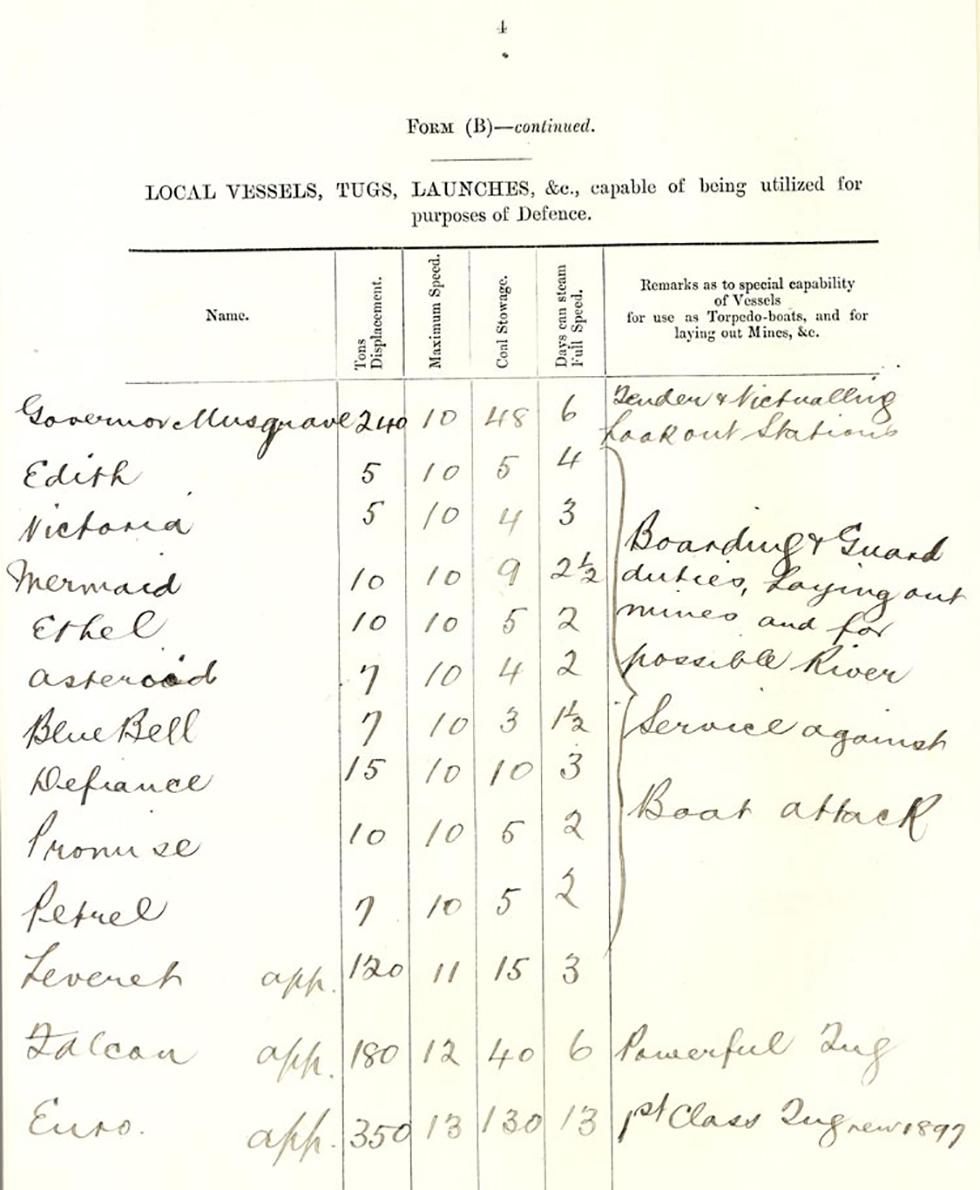 4
FORM (B)—continued.
LOCAL VESSELS, TUGS, LAUNCHES, &c., capable of being utilized for
purposes of Defence.
Name. Tons Displacement. Maximum Speed. Coal Stowage. Days can steam Full Speed. Remarks as to special capability
of Vessels
for use as Torpedo-boats, and for
laying out Mines, &c.
Governor Musgrave 240 10 48 6 Tender & Victualling
Lookout Stations
Edith 5 10 5 4
Victoria 5 10 4 3
Boarding & Guard
Mermaid 10 10 9 2½ duties, Laying out
Ethel 10 10 5 2 mines and for
Asteroid 7 10 4 2 possible River
Blue Bell 7 10 3 1½ Service against
Defiance 15 10 10 3
Boat attack
Promise 10 10 5 2
Petrel 7 10 5 2
Leveret app. 120 11 15 3
Falcon app. 180 12 40 6 Powerful Tug
Euro. app. 350 13 130 13 1st Class Tug new 1897